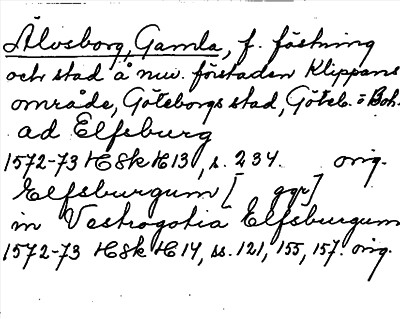 Älvsborg, Gamla, f. fästning
och stad å nuv. förstaden Klippans
område, Göteborgs stad, Göteb. o Boh.
ad Elfsburg
1572-73 H8k H13, s. 234. orig.
Elfsburgum [ ggr]
in Vestrogotia Elfsburgum
1572-73 H8k H14, ss. 121, 155, 157. orig.